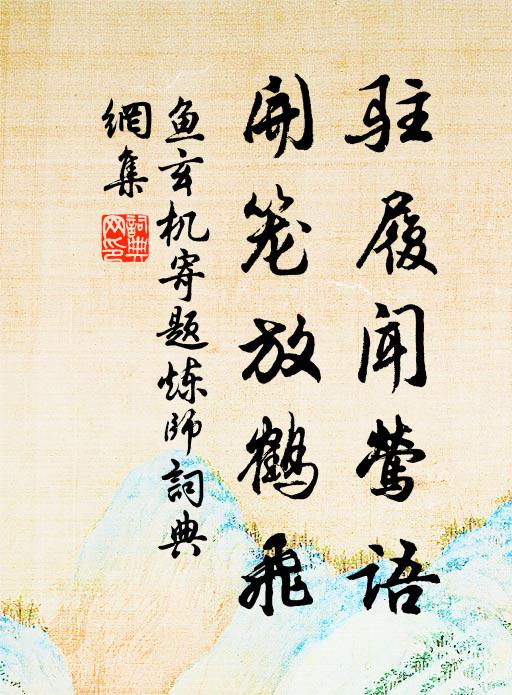 驻履闻莺语
开笼放鹤飞
鱼玄机寄题炼师詞典
網集
詞典網印